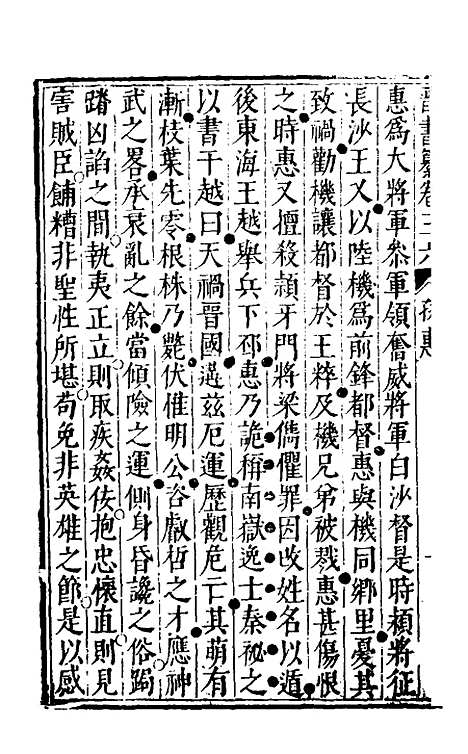 晉書纂卷三六 孫惠
惠爲大將軍叅軍領奮威將軍白沙督是時頴將征
長沙王乂以陸機爲前鋒都督惠與機同鄕里憂其
致禍勸機讓都督於王粹及機兄弟被戮惠甚傷恨
之時惠又擅殺頴牙門將梁儁懼罪因攺姓名以遁
後東海王越舉兵下邳惠乃詭稱南嶽逸士秦祕之
以書干越曰天禍晉國遘玆厄運歷觀危亡其萌有
漸枝葉先零根株乃斃伏惟明公咨叡哲之才應神
武之畧承衰亂之餘當傾險之運側身昏讒之俗跼
蹐凶諂之間執夷正立則取疾姦佞抱忠懷直則見
害賊臣餔糟非聖性所堪苟免非英雄之節是以感